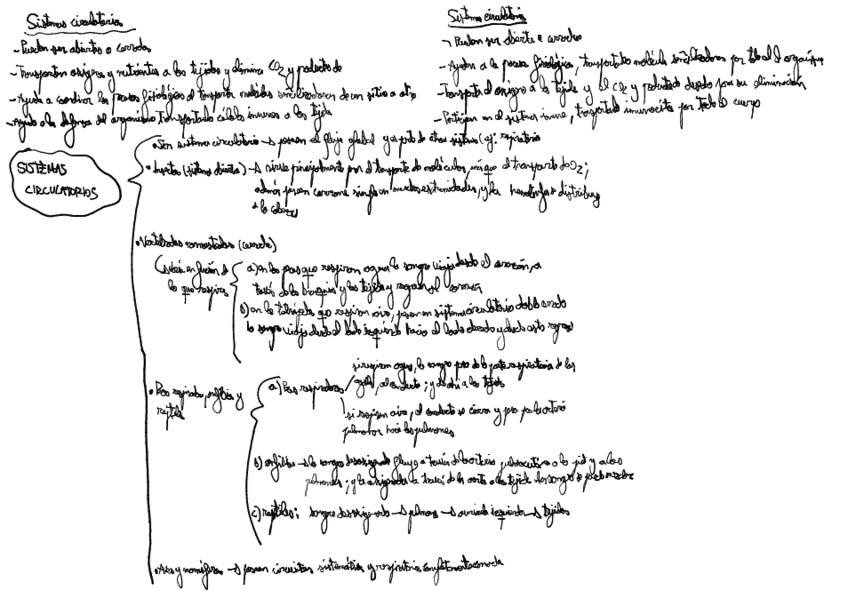 Sistemas circulatorios
- Pueden ser abiertos o cerrados
- Transportan oxígeno y nutrientes a los tejidos y elimina CO2 y productos de
- Ayuda a coordinar los procesos fisiológicos al transportar moléculas señalizadoras de un sitio a otro
- Ayuda a la defensa del organismo transportando células inmunes a los tejidos
Sistema circulatorio
- Pueden ser abierto o cerrados
- Ayudan a los procesos fisiológicos, transportando moléculas señalizadoras por todo el organismo
- Transporta el oxígeno a los tejidos y el CO2 y productos desecho para su eliminación
- Participan en el sistema inmune, transportando por todo el cuerpo
SISTEMAS
CIRCULATORIOS
• Sin sistema circulatorio → poseen el flujo global y aporte de otros sistemas (ej. respiratorio
• Insectos (sistema abierto) → sirve principalmente por el transporte de moléculas, más que el transporte de O2;
además poseen corazones simples en muchas extremidades, y la hemolinfa se distribuye
a la cabeza
• Vertebrados (cerrado)
(varía en función de
lo que respira
a) en los peces que respiran agua la sangre viaja desde el corazón, a
través de las branquias y los tejidos y regresa al corazón
b) en los tetrápodos que respiran aire, poseen un sistema circulatorio doble donde
la sangre viaja desde el lado izquierdo hacia el lado derecho y desde este regresa
• Peces, anfibios y
reptiles
a) Peces
si respiran agua, la sangre pasa de la parte respiratoria de las
al conducto; y de ahí a los tejidos
si respiran aire, el conducto se cierra y pasa por la arteria
pulmonar hacia los pulmones
b) anfibios → la sangre desoxigenada fluye a través de la arteria pulmocutánea a la piel y a los
pulmones; y la oxigenada a través de la aorta a los tejidos
c) reptiles: sangre desoxigenada → pulmones → aurícula izquierda → tejidos
• Aves y mamíferos → poseen circuitos y respiratorio